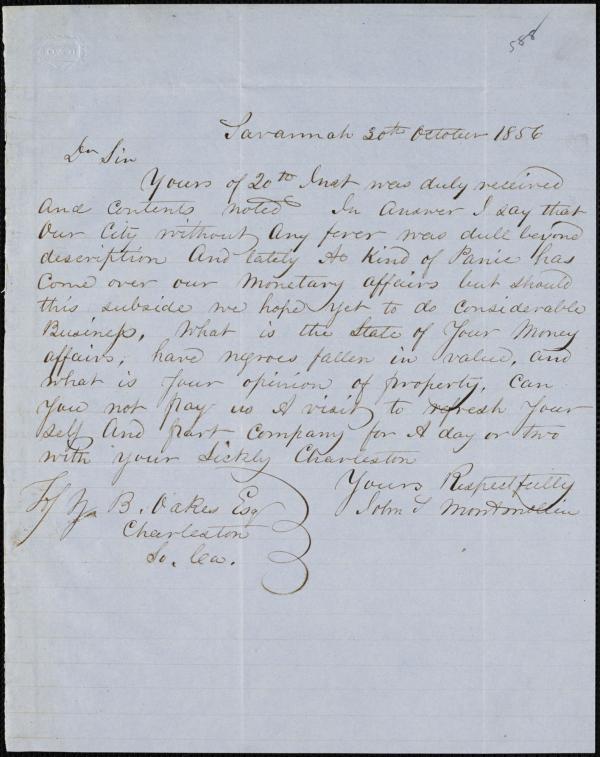 588
Savannah 30th October 1856
Dr Sir
Yours of 20th Inst was duly received
and contents noted In answer I say that
our City without any fever was dull beyond
description And lately A kind of Panic has
come over our Monetary affairs but should
this subside we hope yet to do considerable
Business, What is the State of Your Money
affairs, have negroes fallen in value, and
what is your opinion of property, can
You not pay us A visit to refresh Your
self And part company for A day or two
with your Sickly Charleston
Yours Respectfully
John S Montmollin
B. Oakes Esq
Charleston
So. Ca.